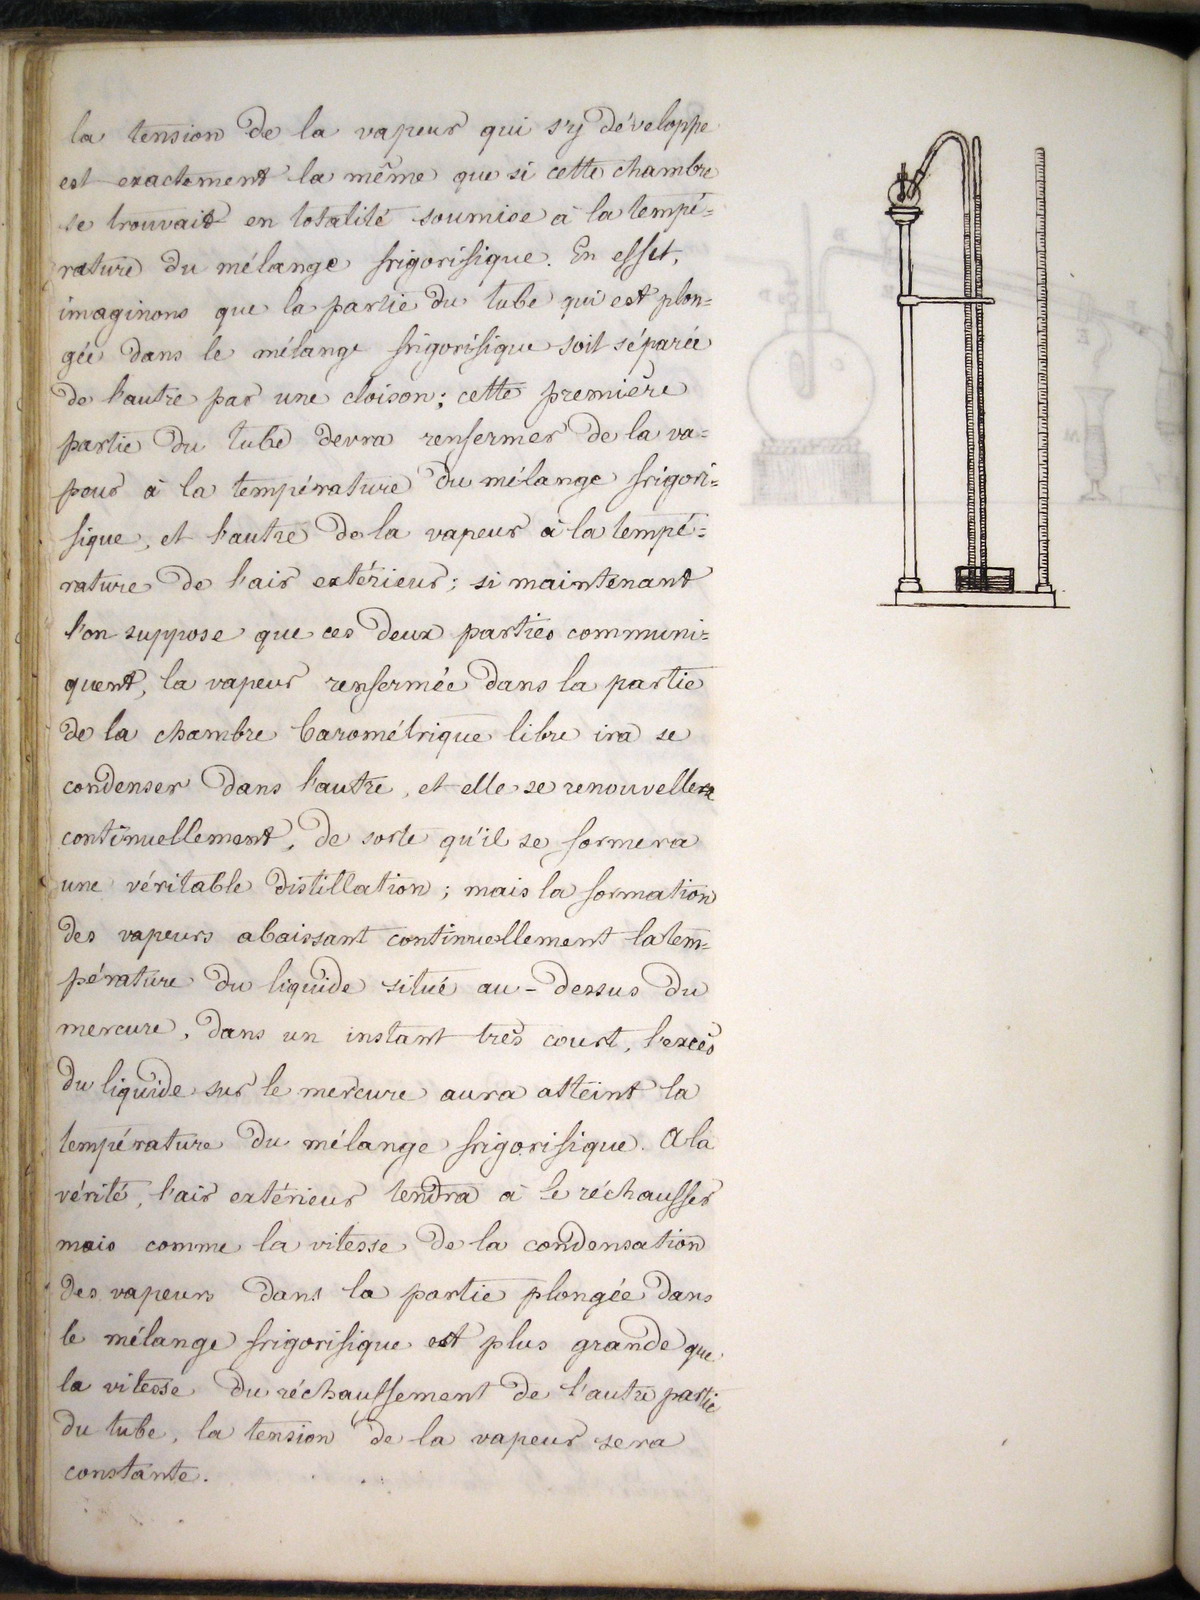 la tension de la vapeur qui s'y développe
est exactement la même que si cette chambre
se trouvait en totalité soumise à la tempé=
rature du mélange frigorifique. En effet,
imaginons que la partie du tube qui est plon=
gée dans le mélange frigorifique soit séparée
de l'autre par une cloison; cette première
partie du tube devra renfermer de la va=
peur à la température du mélange frigori=
fique, et l'autre de la vapeur à la tempé=
rature de l'air extérieur; si maintenant
l'on suppose que ces deux parties communi=
quent, la vapeur renfermée dans la partie
de la chambre barométrique libre ira se
condenser dans l'autre, et elle se renouvellera
continuellement, de sorte qu'il se formera
une véritable distillation; mais la formation
des vapeurs abaissant continuellement la tem=
pérature du liquide situé au-dessus du
mercure, dans un instant très court, l'excès
du liquide sur le mercure aura atteint la
température du mélange frigorifique. A la
vérité, l'air extérieur tendra à le réchauffer
mais comme la vitesse de la condensation
des vapeurs dans la partie plongée dans
le mélange frigorifique est plus grande que
la vitesse du réchauffement de l'autre partie
du tube, la tension de la vapeur sera
constante.